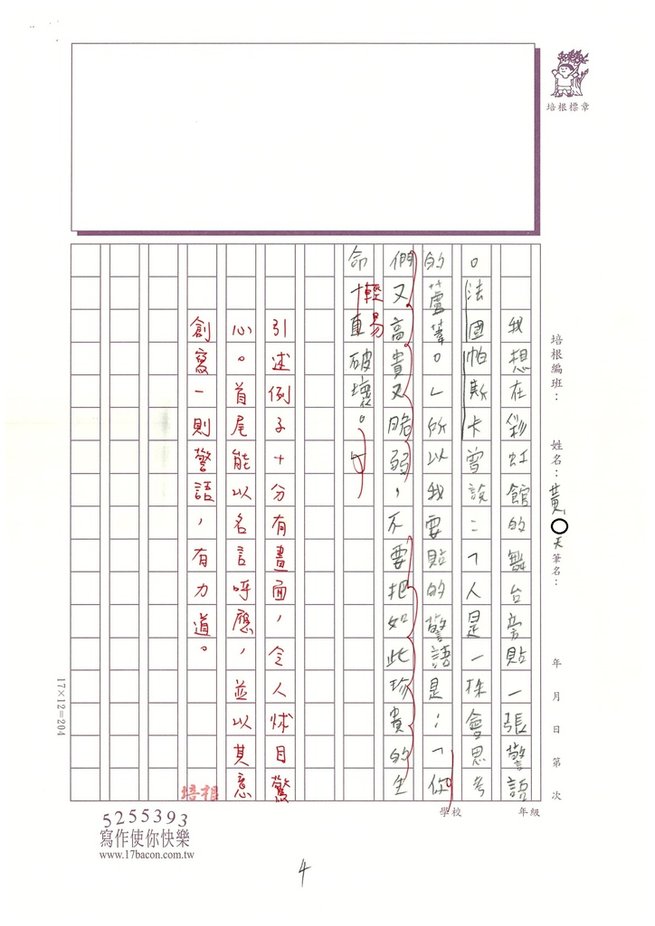 培根標章
培根編班：
姓名：黃○天
筆名：
年 月 日 第 次
學校
年級
我想在彩虹館的舞台旁貼一張警語
。法國帕斯卡曾說：「人是一株會思考
的蘆葦。」所以我要貼的警語是：「你
們又高貴又脆弱，不要把如此珍貴的生
命輕易直破壞。」
引述例子十分有畫面，令人怵目驚
心。首尾能以名言呼應，並以其意
創寫一則警語，有力道。
培根
17×12=204
5255393
寫作使你快樂
www.17bacon.com.tw
4